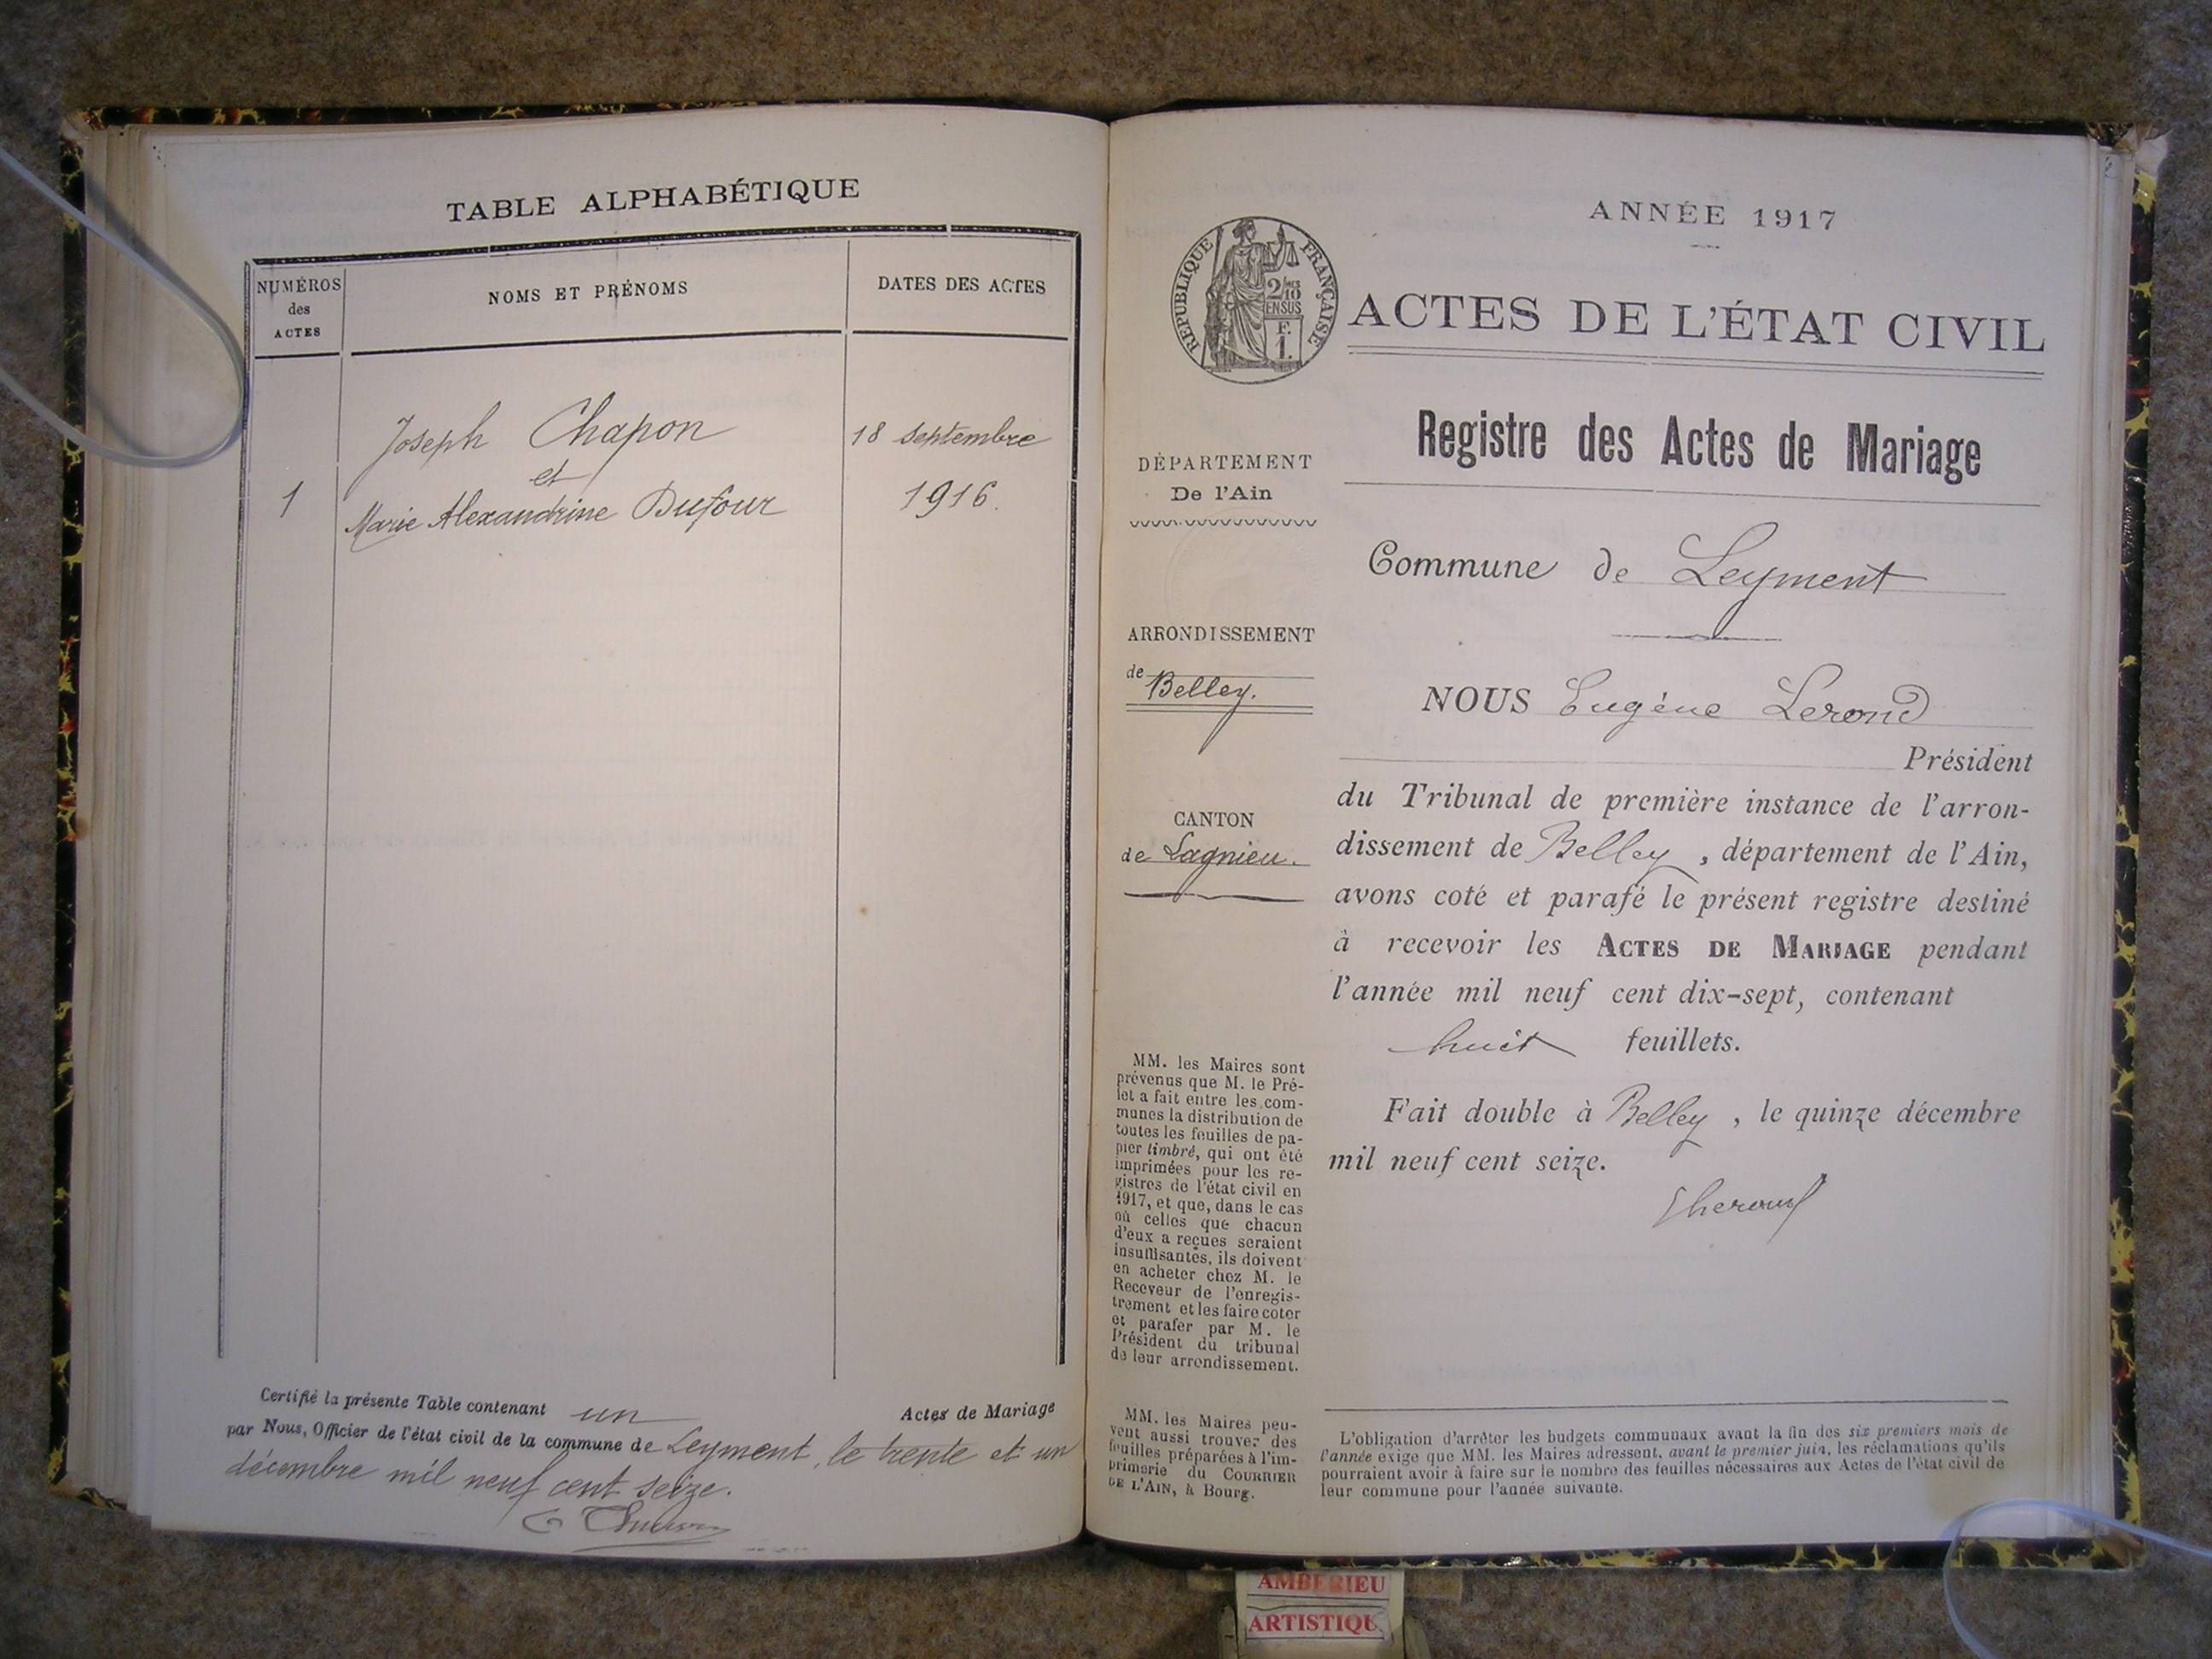 TABLE ALPHABÉTIQUE
NUMÉROS
des
ACTES
NOMS ET PRÉNOMS
DATES DES ACTES
Joseph Chapon
et
1
Marie Alexandrine Dufour
18 septembre
1916.
Certifié la présente Table contenant un Actes de Mariage
par Nous, Officier de l'état civil de la commune de Leyment, le trente et un
décembre mil neuf cent seize.
ANNÉE 1917
RÉPUBLIQUE FRANÇAISE
2/10
EN SUS
F.
1.
ACTES DE L'ÉTAT CIVIL
Registre des Actes de Mariage
DÉPARTEMENT
De l'Ain
ARRONDISSEMENT
de Belley.
CANTON
de Lagnieu.
MM. les Maires sont
prévenus que M. le Pré-
fet a fait entre les com-
munes la distribution de
toutes les feuilles de pa-
pier timbré, qui ont été
imprimées pour les re-
gistres de l'état civil en
1917, et que, dans le cas
où celles que chacun
d'eux a reçues seraient
insuffisantes, ils doivent
en acheter chez M. le
Receveur de l'enregis-
trement et les faire coter
et parafer par M. le
Président du tribunal
de leur arrondissement.
MM. les Maires peu-
vent aussi trouver des
feuilles préparées à l'im-
primerie du COURRIER
DE L'AIN, à Bourg.
Commune de Leyment
NOUS Eugène Lerond
Président
du Tribunal de première instance de l'arron-
dissement de Belley, département de l'Ain,
avons coté et parafé le présent registre destiné
à recevoir les ACTES DE MARIAGE pendant
l'année mil neuf cent dix-sept, contenant
huit feuillets.
Fait double à Belley, le quinze décembre
mil neuf cent seize.
L'obligation d'arrêter les budgets communaux avant la fin des six premiers mois de
l'année exige que MM. les Maires adressent, avant le premier juin, les réclamations qu'ils
pourraient avoir à faire sur le nombre des feuilles nécessaires aux Actes de l'état civil de
leur commune pour l'année suivante.
AMBERIEU
ARTISTIQU